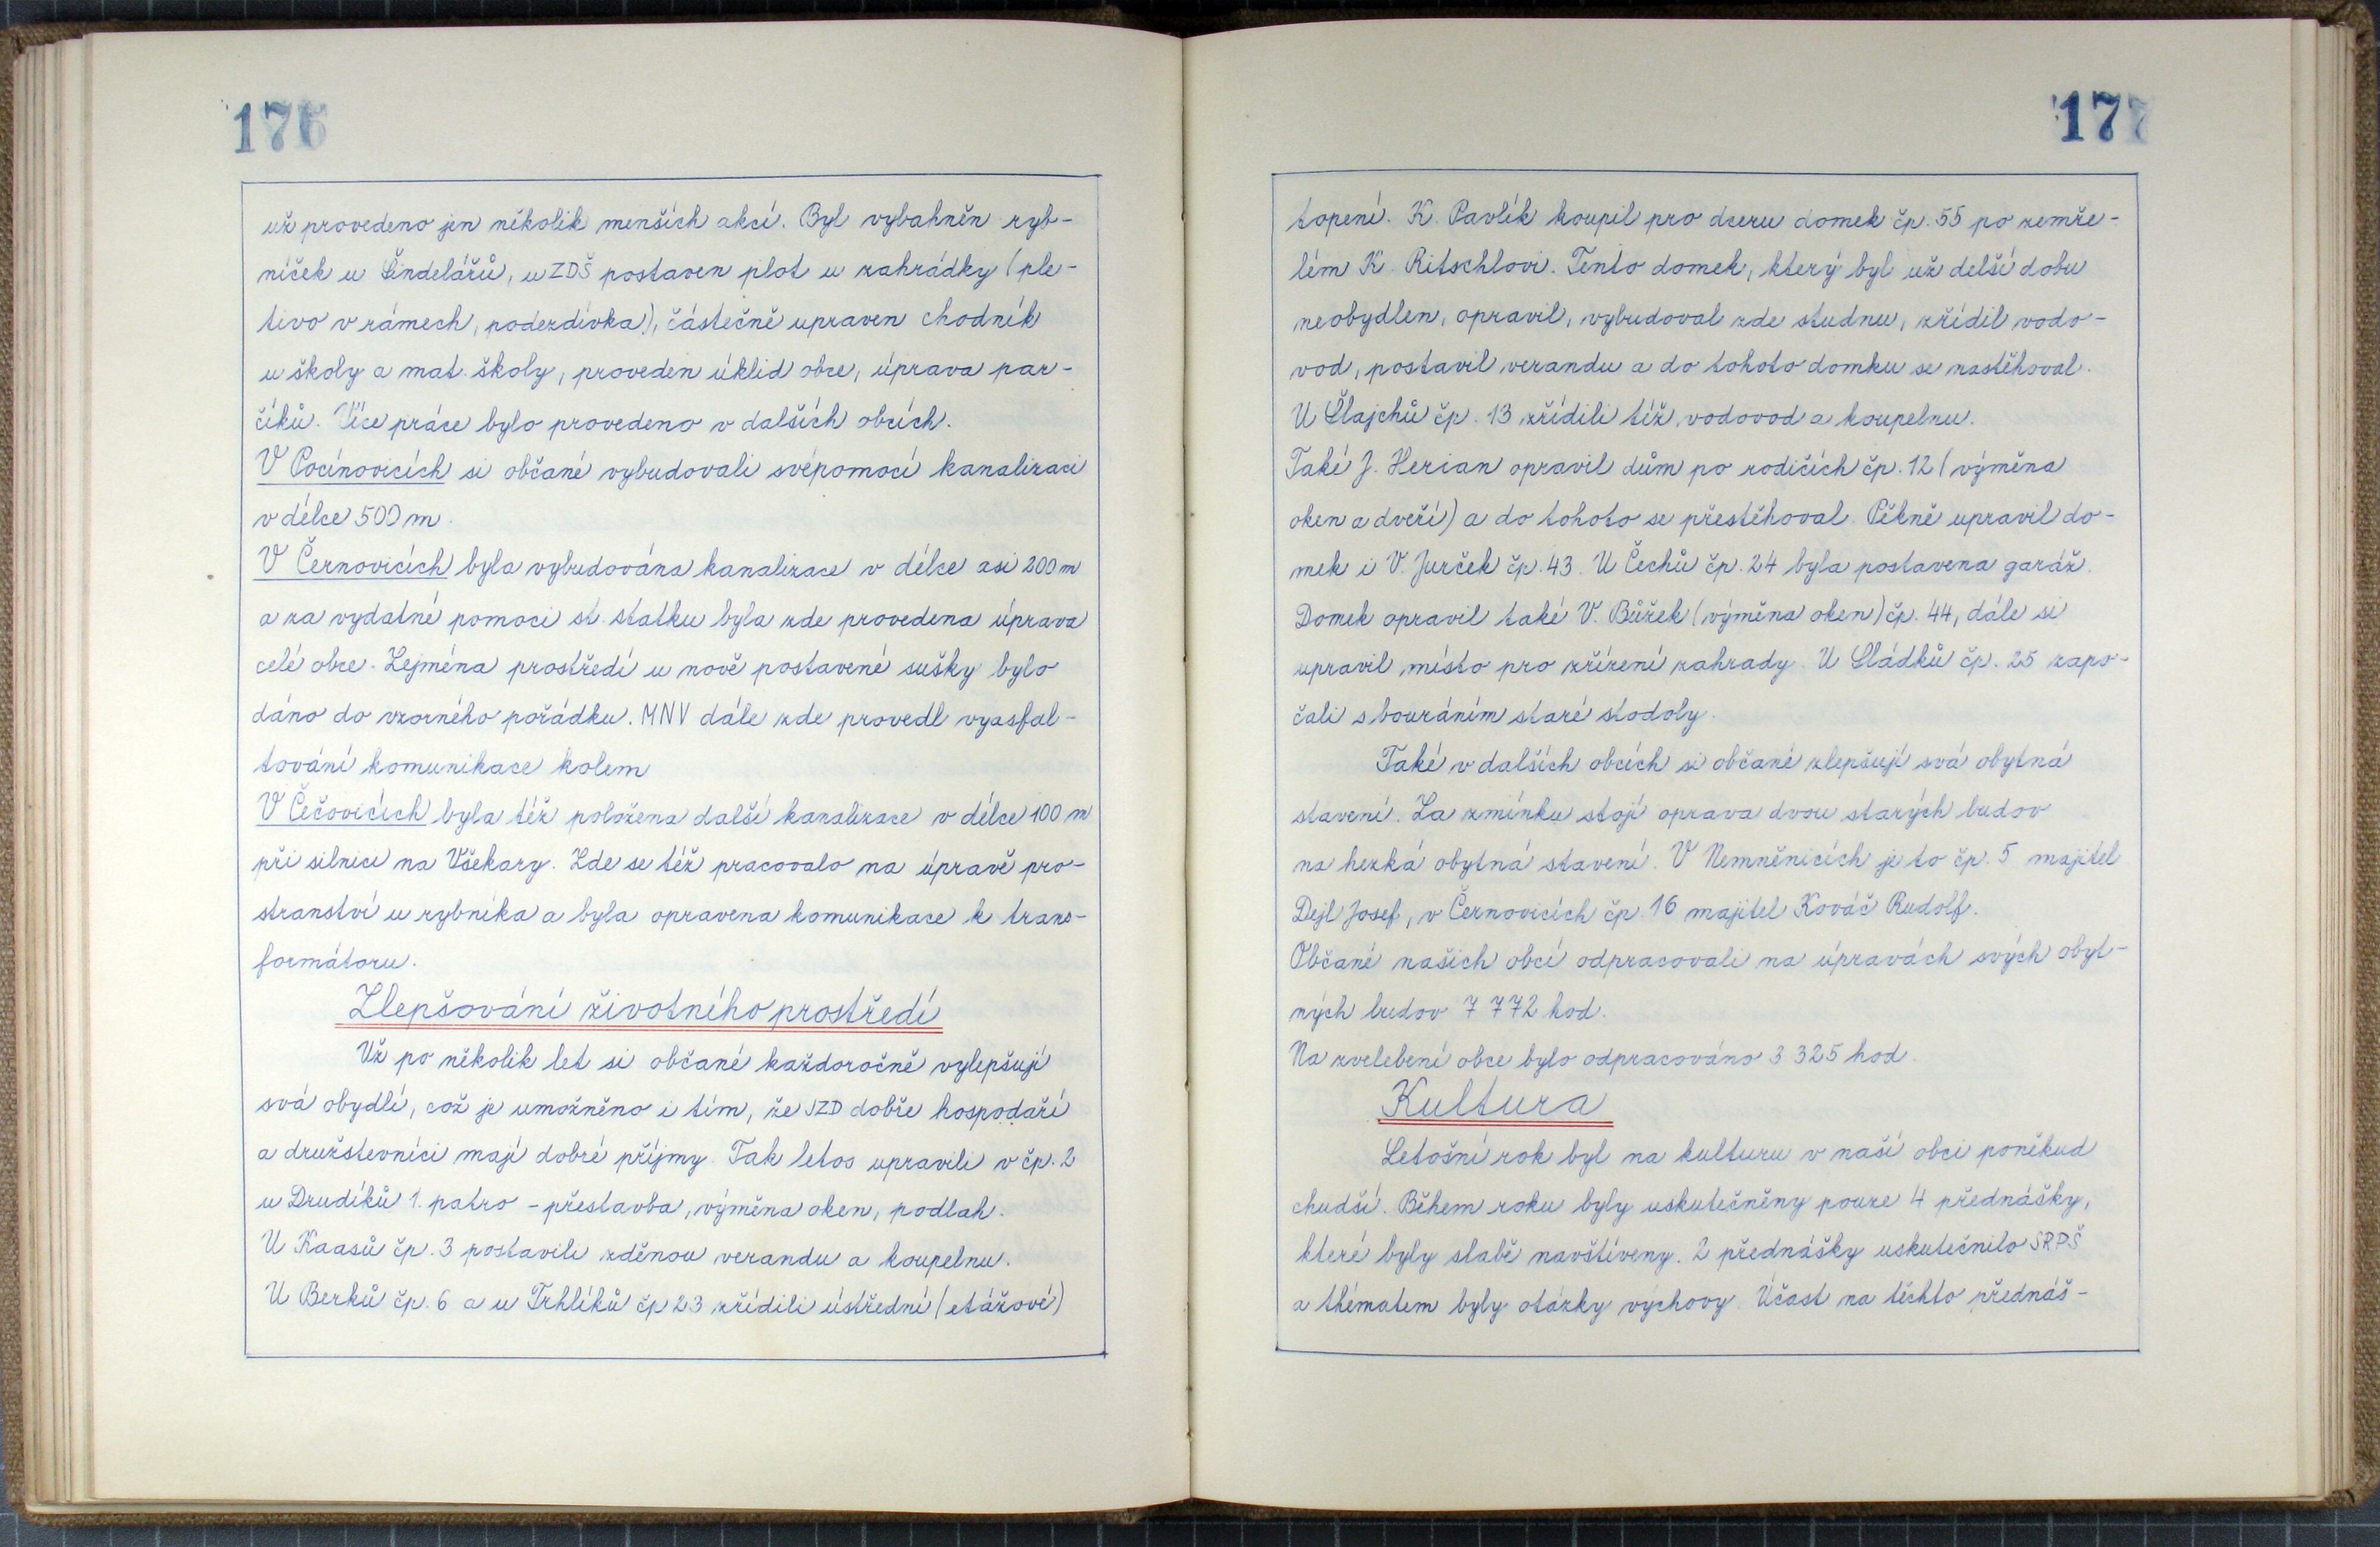 176
už provedeno jen několik menších akcí. Byl vybahněn ryb-
níček u Šindelářů, u ZDŠ postaven plot u zahrádky (ple-
tivo v rámech, podezdívka), částečně upraven chodník
u školy a mat. školy, proveden úklid obce, úprava par-
číků. Více práce bylo provedeno v dalších obcích.
V Pocínovicích si občané vybudovali svépomocí kanalizaci
v délce 500 m.
V Černovicích byla vybudována kanalizace v délce asi 200 m
a za vydatné pomoci st. statku byla zde provedena úprava
celé obce. Zejména prostředí u nově postavené sušky bylo
dáno do vzorného pořádku. MNV dále zde provedl vyasfal-
tování komunikace kolem
V Čečovicích byla též položena další kanalizace v délce 100 m
při silnici na Všekary. Zde se též pracovalo na úpravě pro-
stranství u rybníka a byla opravena komunikace k trans-
formátoru.
Zlepšování životného prostředí
Už po několik let si občané každoročně vylepšují
svá obydlí, což je umožněno i tím, že JZD dobře hospodaří
a družstevníci mají dobré příjmy. Tak letos upravili v čp. 2
u Drudíků 1. patro - přestavba, výměna oken, podlah.
U Kaasů čp. 3 postavili zděnou verandu a koupelnu.
U Berků čp. 6 a u Trhlíků čp 23 zřídili ústřední (etážové)
177
topení. K. Pavlík koupil pro dceru domek čp. 55 po zemře-
lém K. Ritschlovi. Tento domek, který byl už delší dobu
neobydlen, opravil, vybudoval zde studnu, zřídil vodo-
vod, postavil verandu a do tohoto domku se nastěhoval.
U Šlajchů čp. 13 zřídili též vodovod a koupelnu.
Také J. Herian opravil dům po rodičích čp. 12 (výměna
oken a dveří) a do tohoto se přestěhoval. Pěkně upravil do-
mek i V. Jurček čp. 43. U Čechů čp. 24 byla postavena garáž.
Domek opravil také V. Bůžek (výměna oken) čp. 44, dále si
upravil místo pro zřízení zahrady. U Sládků čp. 25 zapo-
čali s bouráním staré stodoly.
Také v dalších obcích si občané zlepšují svá obytná
stavení. Za zmínku stojí oprava dvou starých budov
na hezká obytná stavení. V Nemněnicích je to čp. 5 majitel
Dejl Josef, v Černovicích čp. 16 majitel Kováč Rudolf.
Občané našich obcí odpracovali na úpravách svých obyt-
ných budov 7 772 hod.
Na zvelebení obce bylo odpracováno 3 325 hod.
Kultura
Letošní rok byl na kulturu v naší obci poněkud
chudší. Během roku byly uskutečněny pouze 4 přednášky,
které byly slabě navštíveny. 2 přednášky uskutečnilo SRPŠ
a thématem byly otázky výchovy. Účast na těchto přednáš-